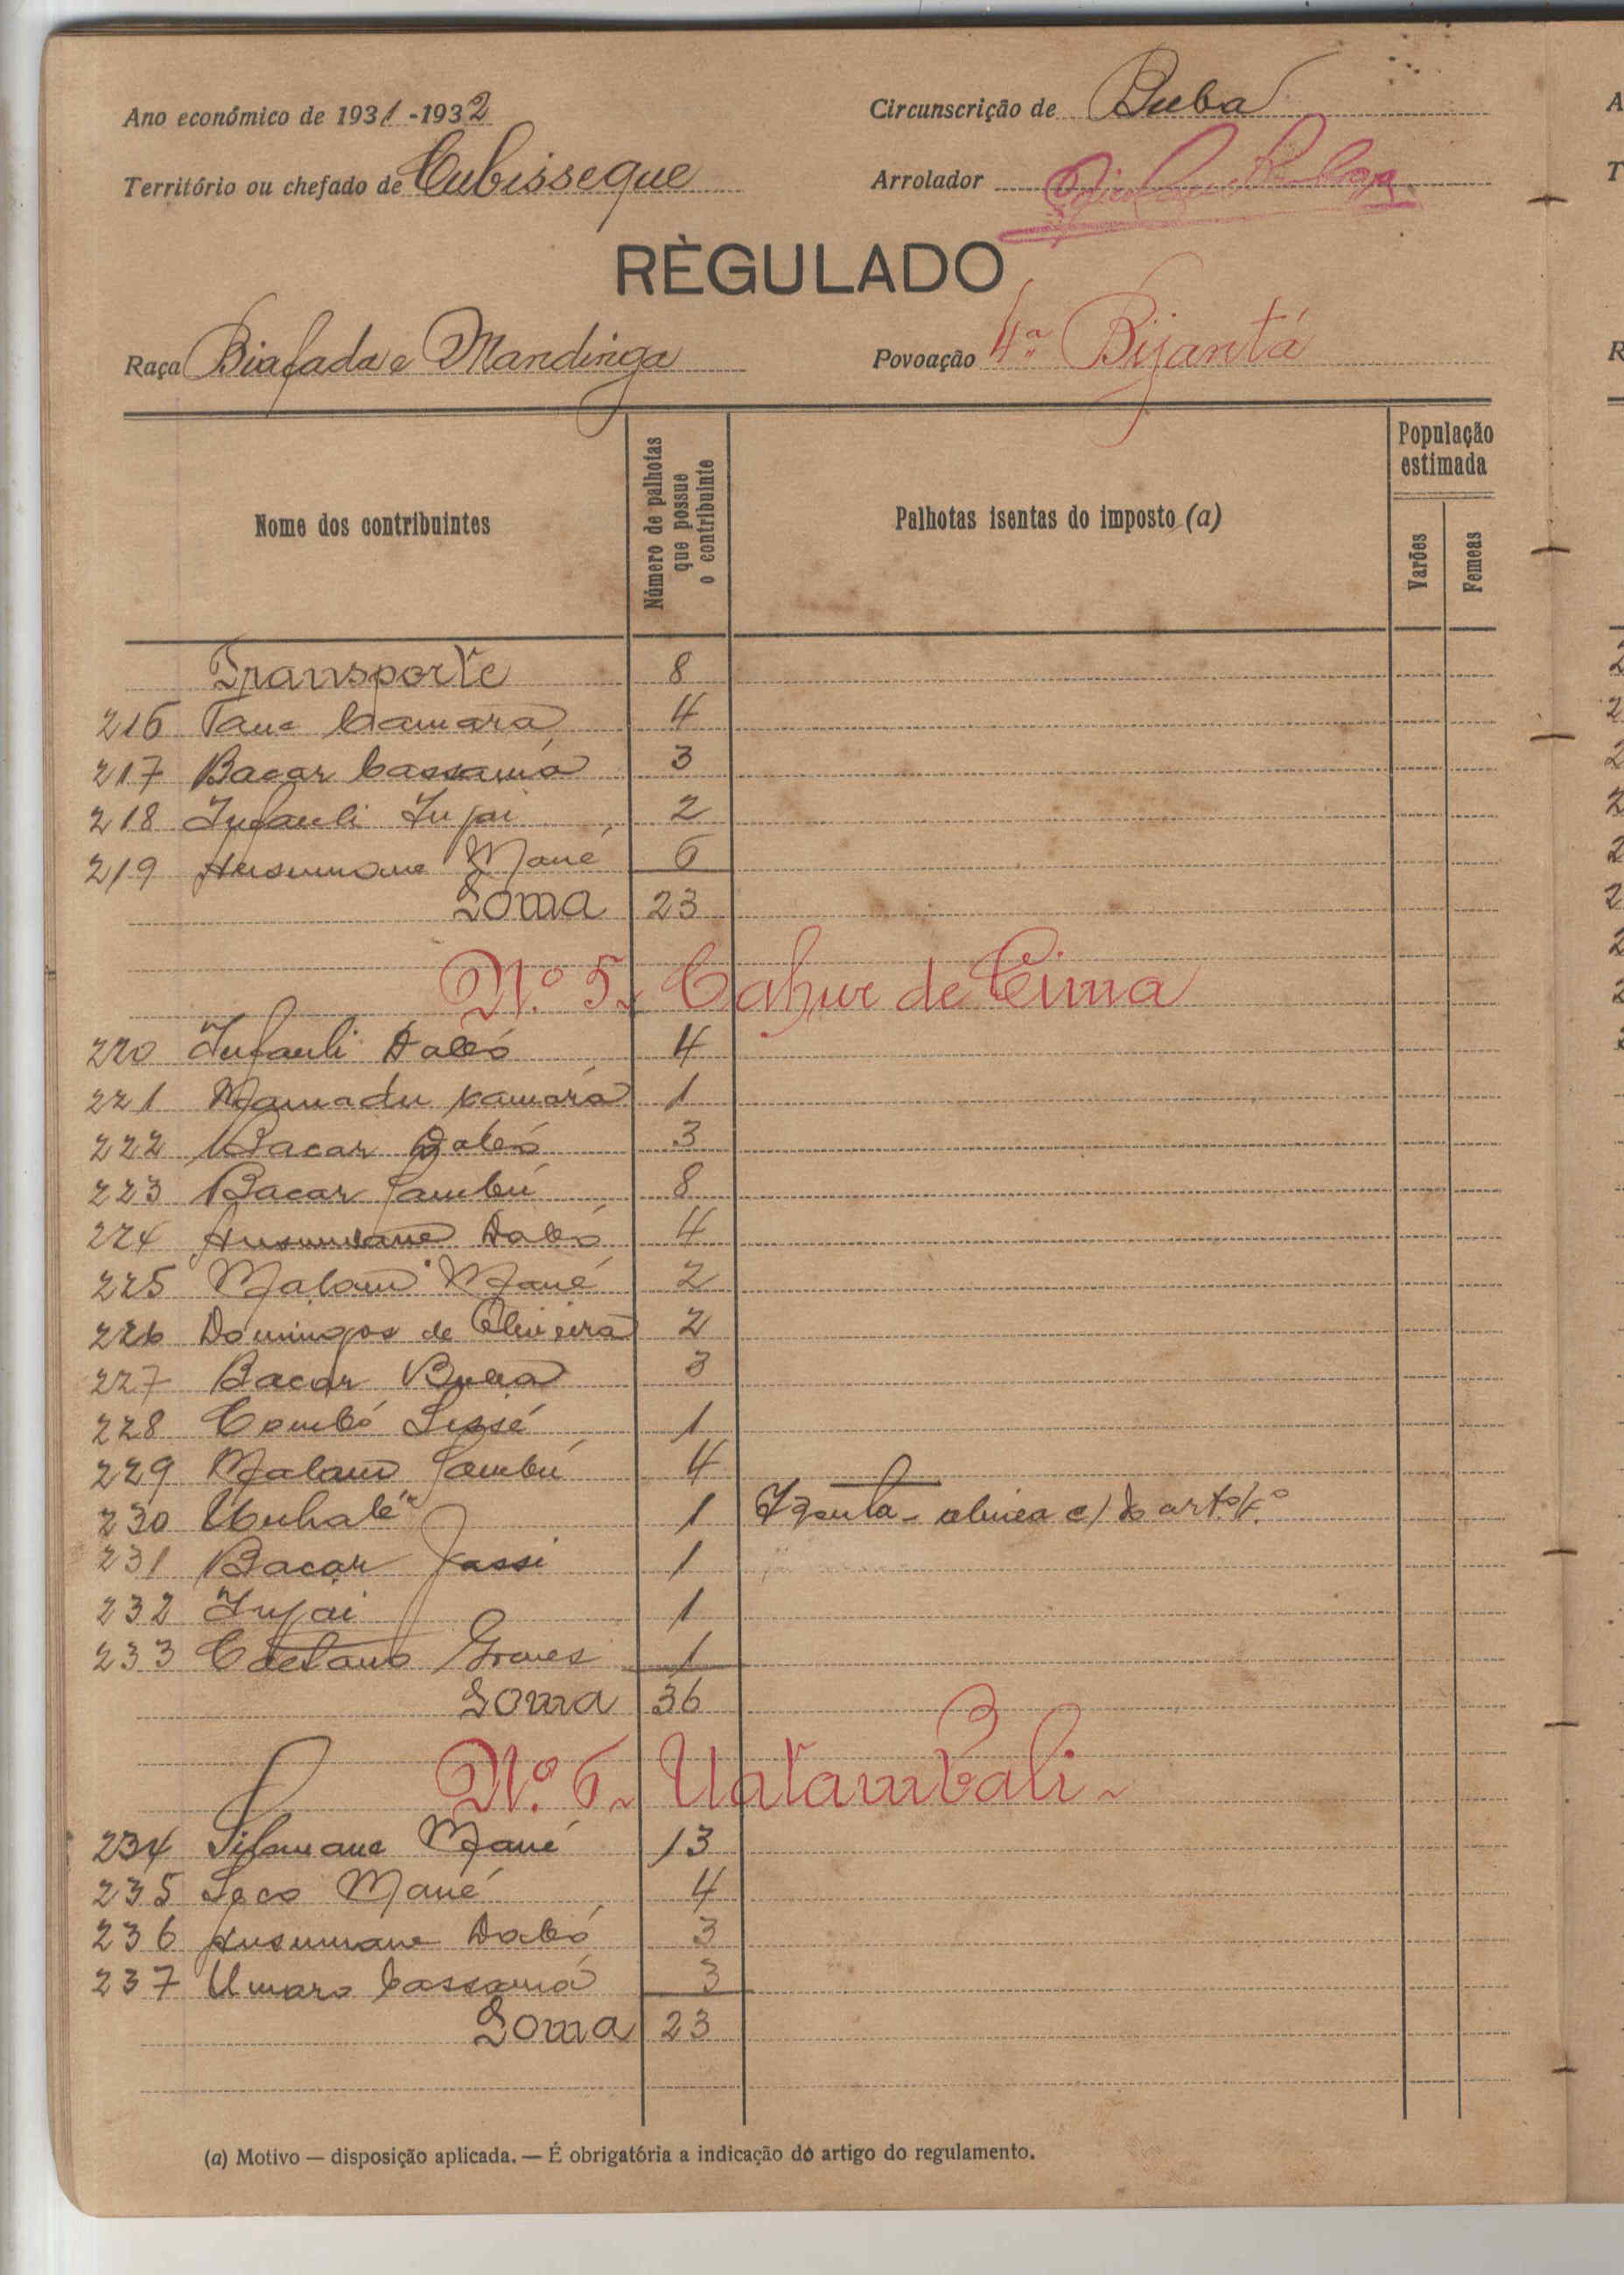 Ano económico de 1931-1932
Circunscrição de Buba
Território ou chefado de Cubisseque
Arrolador
RÈGULADO
Raça Biafada e Mandinga
Povoação 4ª Bijantá
Nome dos contribuintes
Número de palhotas que possue o contribuinte
Palhotas isentas do imposto (a)
População estimada
Varões
Femeas
Transporte 8
216 Camara 4
217 Bacar Cassamá 3
218 Infauli Injai 2
219 Ansumane Mané 6
Soma 23
N.º 5 Cahur de Cima
220 Infauli Dabó 4
221 Mamadu Camará 1
222 Bacar Dabó 3
223 Bacar Jambú 8
224 Ansumane Dabó 4
225 Malam Mané 2
226 Domingos de Oliveira 2
227 Bacar 3
228 Combó Sissé 1
229 Malam Jambú 4
230 1 Izenta - alinea c) do artº
231 Bacar Jassi 1
232 Injai 1
233 Caetano Gomes 1
Soma 36
N.º 6 Untambali
234 Mané 13
235 Seco Mané 4
236 Ansumane Dabó 3
237 Umaro Cassamá 3
Soma 23
(a) Motivo — disposição aplicada. — É obrigatória a indicação do artigo do regulamento.